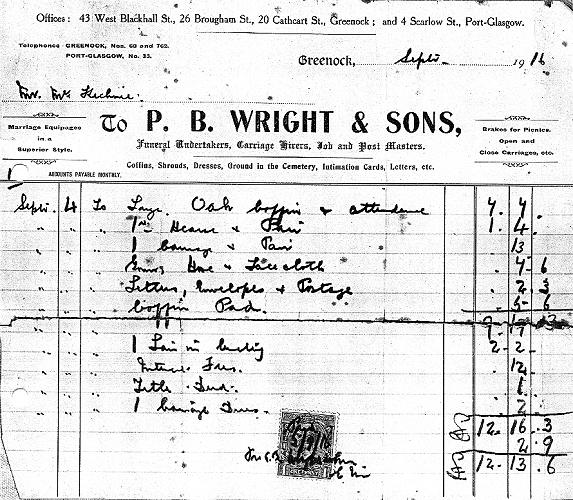 Offices: 43 West Blackhall St., 26 Brougham St., 20 Cathcart St., Greenock; and 4 Scarlow St., Port-Glasgow.
Telephones GREENOCK, Nos. 68 and 762.
PORT-GLASGOW, No. 35.
Greenock, Septr 1916
Mr. Mc Kechnie.
Marriage Equipages
in a
Superior Style.
To P. B. WRIGHT & SONS,
Brakes for Picnics.
Open and
Close Carriages, etc.
Funeral Undertakers, Carriage Hirers, Job and Post Masters.
Coffins, Shrouds, Dresses, Ground in the Cemetery, Intimation Cards, Letters, etc.
ACCOUNTS PAYABLE MONTHLY.
Septr 4 To Large Oak Coffin & attendance 7. 7.
" " " Hearse & Pair 1. 4.
" " " 1 Carriage & Pair 13
" " " Hose & Facecloth 4. 6
" " " Letters, Envelopes & Postage 2. 3
" " " Coffin Pad. 6. 6
" " " 1 Lair in 2. 2.
" " " Interm. Fees. 12.
" " " Title 1.
" " " 1 Carriage 2
12. 16. 3
2. 9
12. 13. 6